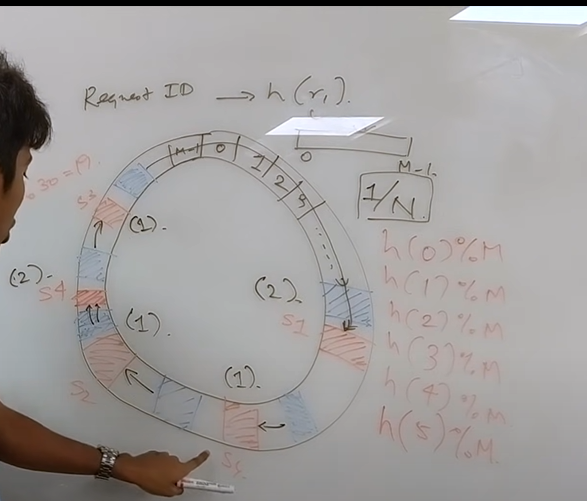 Request ID → h(r1).
0
M-1
1/N
30 = 19.
M-1 0 1 2 3 ......
S3
(1).
(2).
S4
(2).
S1
(1).
S2
(1).
S4.
h(0)%M
h(1)%M
h(2)%M
h(3)%M
h(4)%M
h(5)%M.